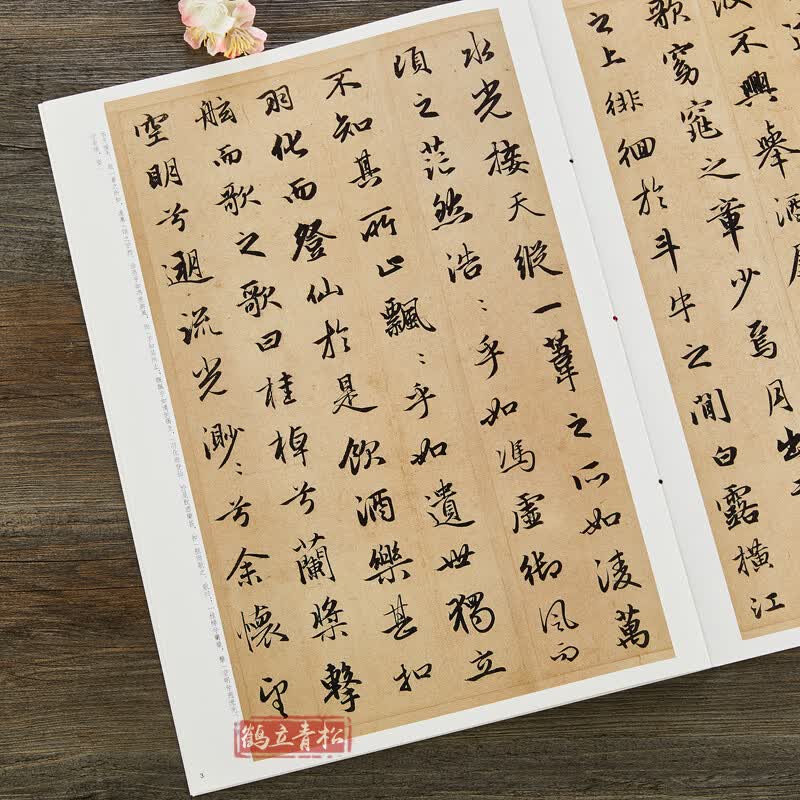 不興舉酒
歌窈窕之章少焉月出
之上徘徊於斗牛之間白露橫江
水光接天縱一葦之所如淩萬
頃之茫然浩〻乎如馮虛御風而
不知其所止飄〻乎如遺世獨立
羽化而登仙於是飲酒樂甚扣
舷而歌之歌曰桂棹兮蘭槳擊
空明兮遡流光渺〻兮余懷望
3
鹤立青松